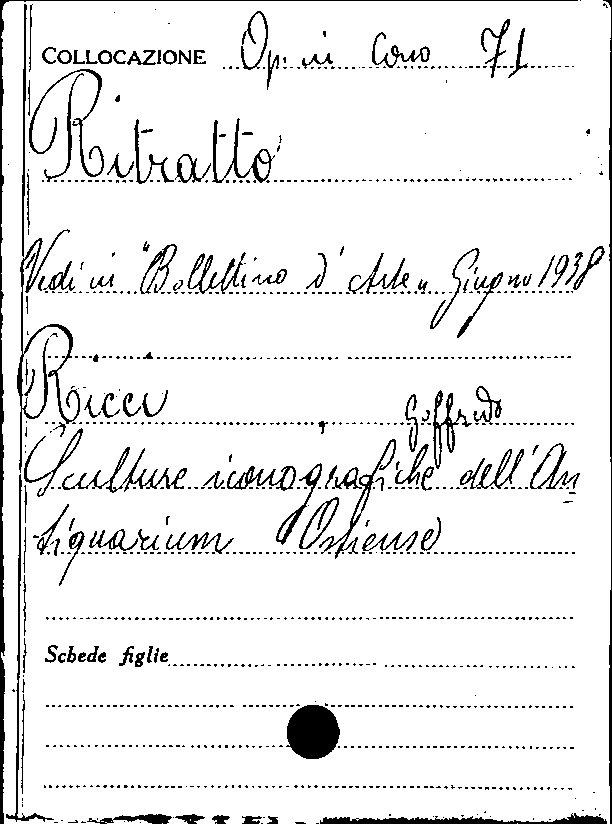 COLLOCAZIONE Op. in Corso 71
Ritratto
Vedi in "Bollettino d'Arte" Giugno 1938
Ricci, Goffredo
Sculture iconografiche dell'An=
tiquarium Ostiense
Schede figlie